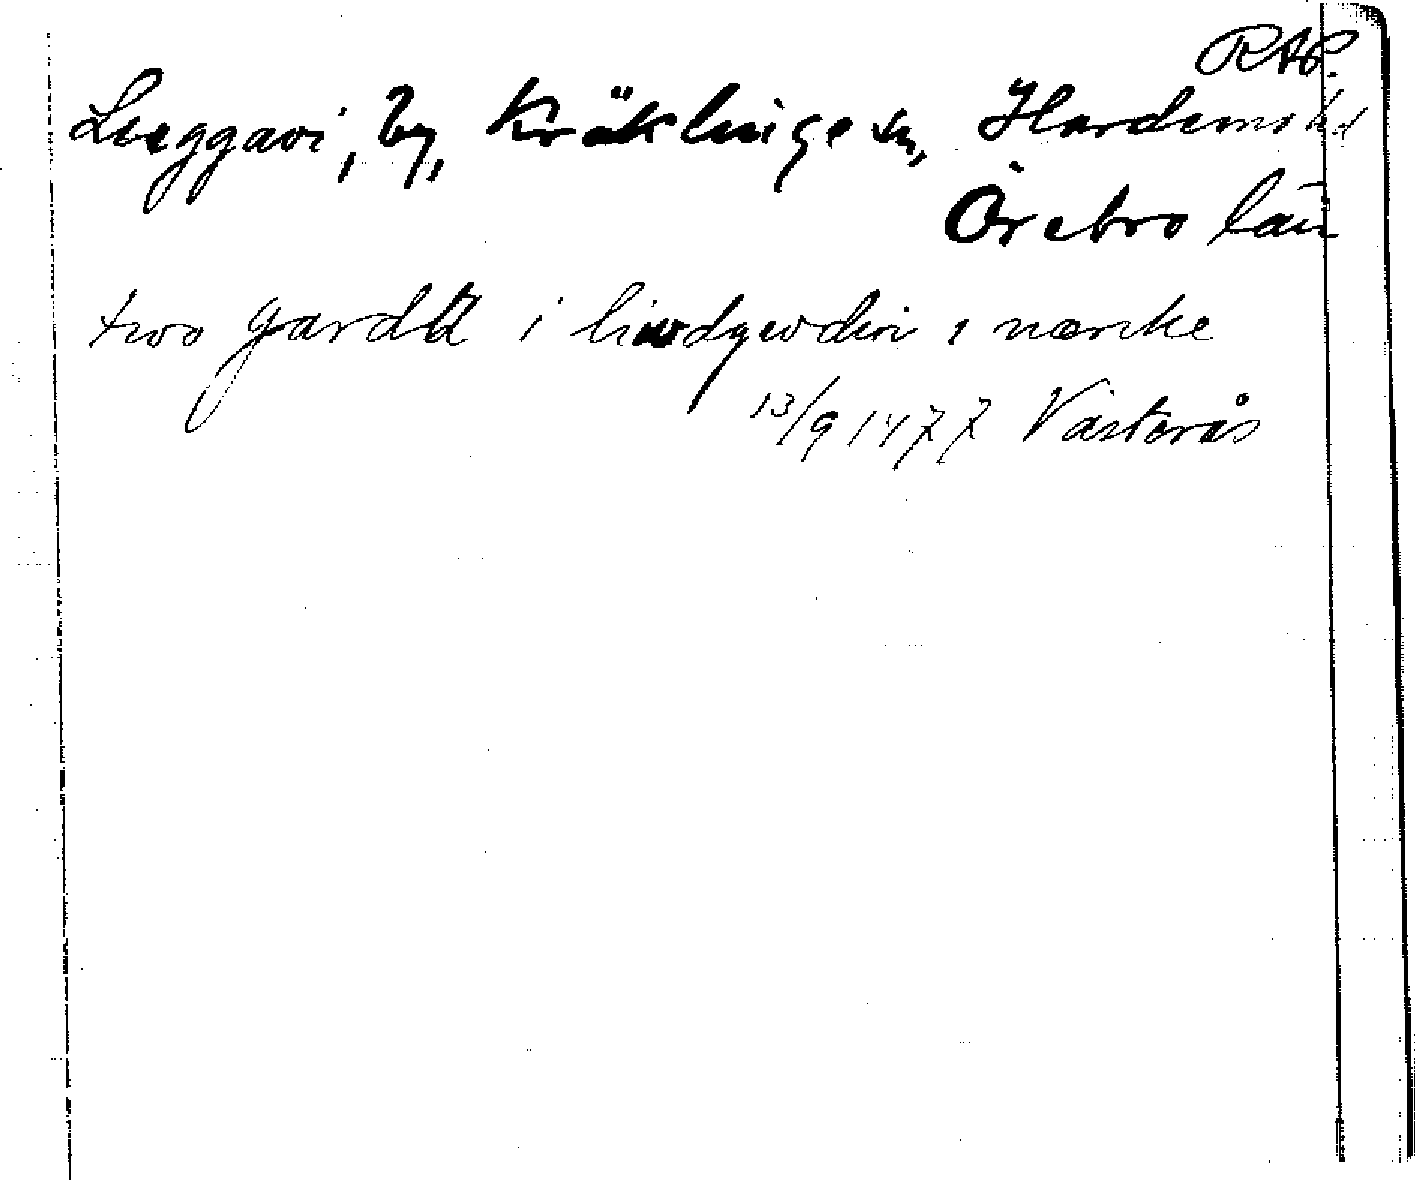 RAP.
Luggavi, by, Kräklinge sn, Hardemo hd
Örebro län
two garda i liwdgwdwi i nærike
13/9 1477 Västerås